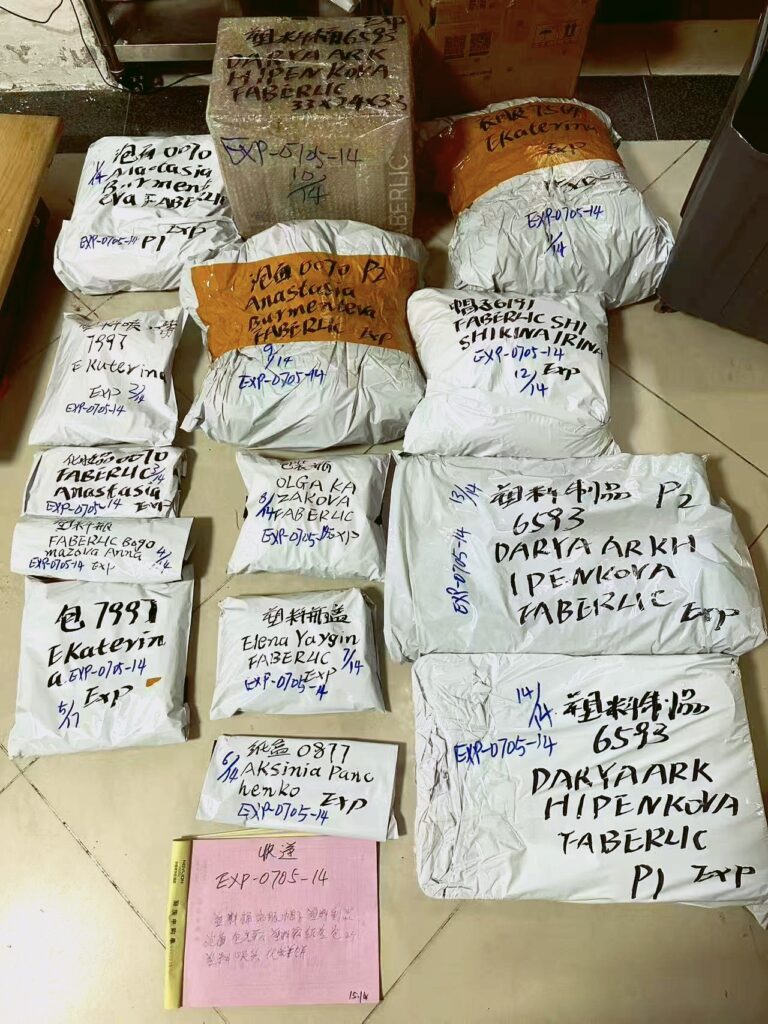 塑料桶6593
EXP
DARYA ARK
HIPENKOVA
FABERLIC
33×24×33
EXP-0705-14
10/14
FABERLIC
Ekaterina
Exp
EXP-0705-14
11/14
0070
1/14
Anastasia
Burment
eva FABERLIC
Exp
EXP-0705-14
P1
0070 P2
Anastasia
Burmenteva
FABERLIC
Exp
9/14
EXP-0705-14
帽子6191
FABERLIC SHI
SHIKINA IRINA
EXP-0705-14
12/14
Exp
7997
Ekaterina
Exp 2/14
EXP-0705-14
化妆品0070
FABERLIC 3/14
Anastasia
EXP-0705-14
Exp
塑料瓶
FABERLIC Bogo
mazova Anna 4/14
EXP-0705-14 Exp
包装瓶
OLGA KA
ZAKOVA
8/14
FABERLIC
EXP-0705-14
Exp
13/14
塑料制品 P2
6593
DARYA ARKH
IPENKOVA
FABERLIC
Exp
EXP-0705-14
包 7997
Ekaterin
a EXP-0705-14
Exp
5/17
塑料瓶盖
Elena Yaygin
FABERLIC 7/14
Exp
EXP-0705-14
14/14
塑料制品
EXP-0705-14
6593
DARYA ARK
HIPENKOVA
FABERLIC
P1 Exp
纸盒 0877
6/14
Aksinia Panc
henko
Exp
EXP-0705-14
收送
EXP-0705-14
15:14